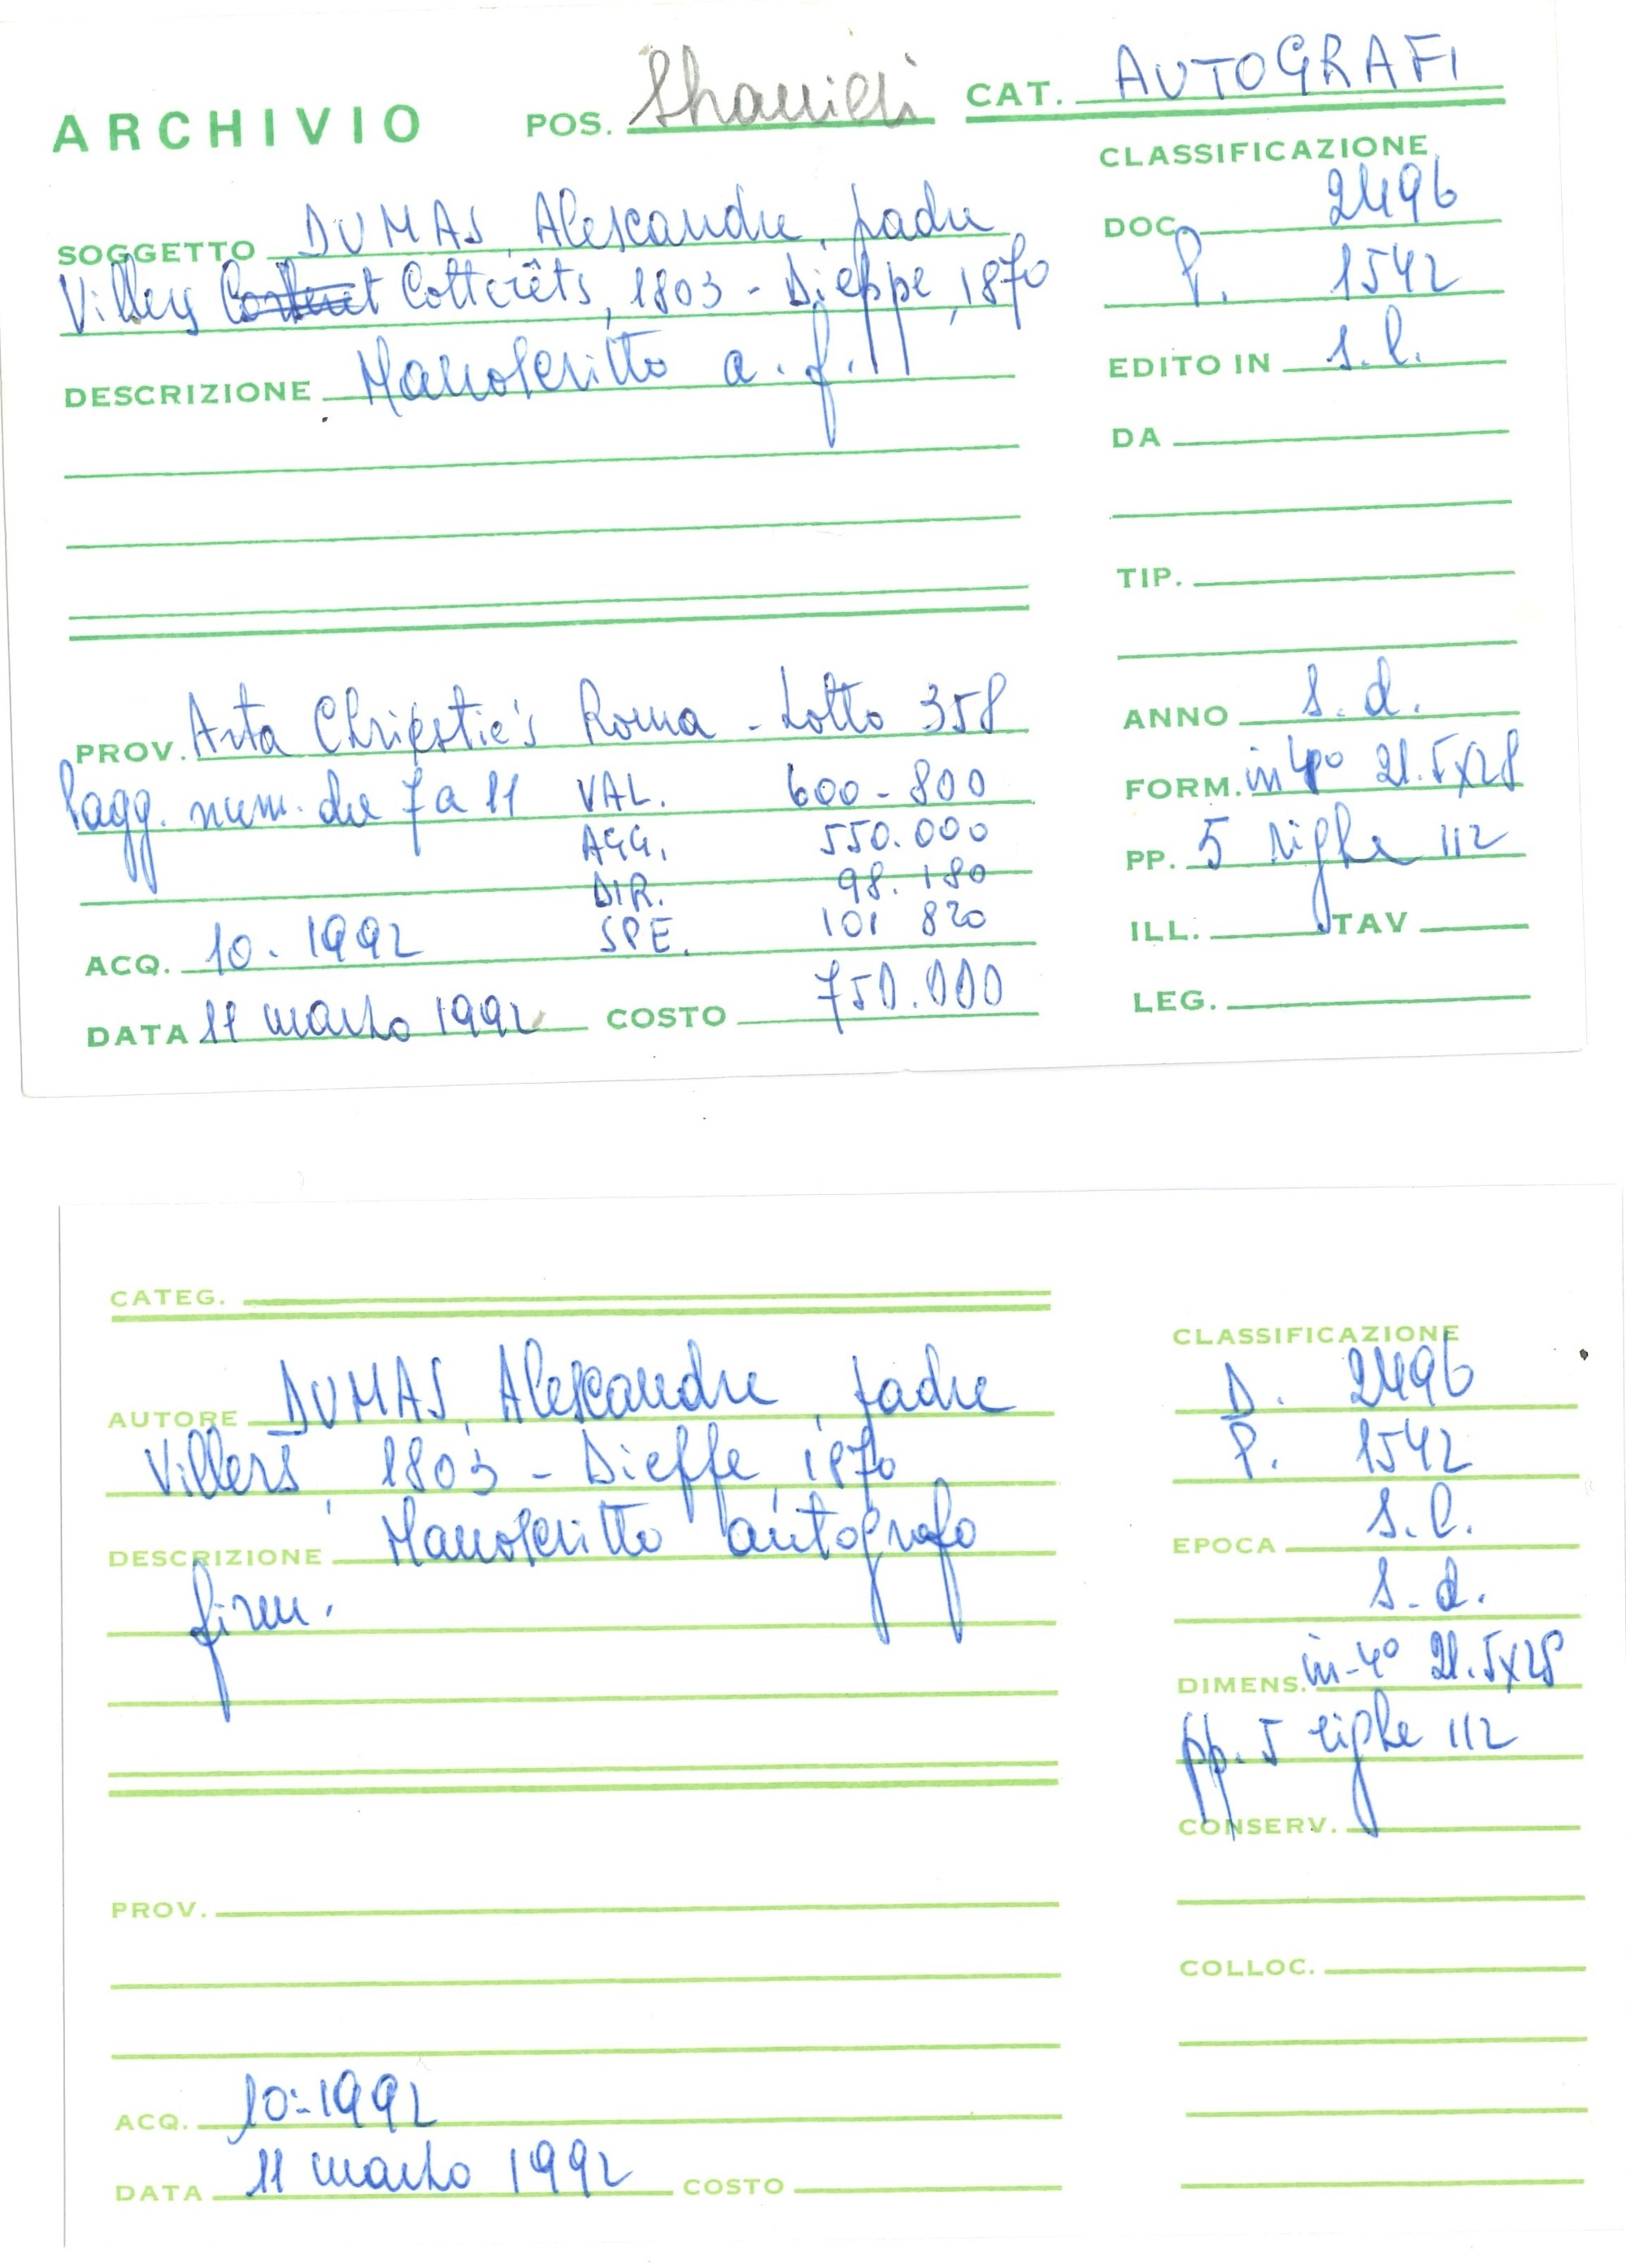 ARCHIVIO POS. CAT. AUTOGRAFI
CLASSIFICAZIONE
SOGGETTO DUMAS, Alexandre, padre
DOC. 2496
Villers Cotterêts, 1803 - Dieppe, 1870
P. 1542
DESCRIZIONE Manoscritto a. f.
EDITO IN s.l.
DA
TIP.
ANNO s.d.
PROV. Asta Christie's Roma - Lotto 358
FORM. in 4° 21.5x28
Pagg. num. da 7 a 11 VAL. 600-800
AGG. 550.000
PP. 5 righe 112
DIR. 98.180
SPE. 101 820
ILL. TAV
ACQ. 10.1992
DATA 11 marzo 1992 COSTO 750.000
LEG.
CATEG.
CLASSIFICAZIONE
AUTORE DUMAS, Alexandre, padre
D. 2496
Villers, 1803 - Dieppe, 1870
P. 1542
DESCRIZIONE Manoscritto autografo
EPOCA s.l.
firm.
s.d.
DIMENS. in-4° 21.5x28
pp. 5 righe 112
CONSERV.
PROV.
COLLOC.
ACQ. 10-1992
DATA 11 marzo 1992 COSTO